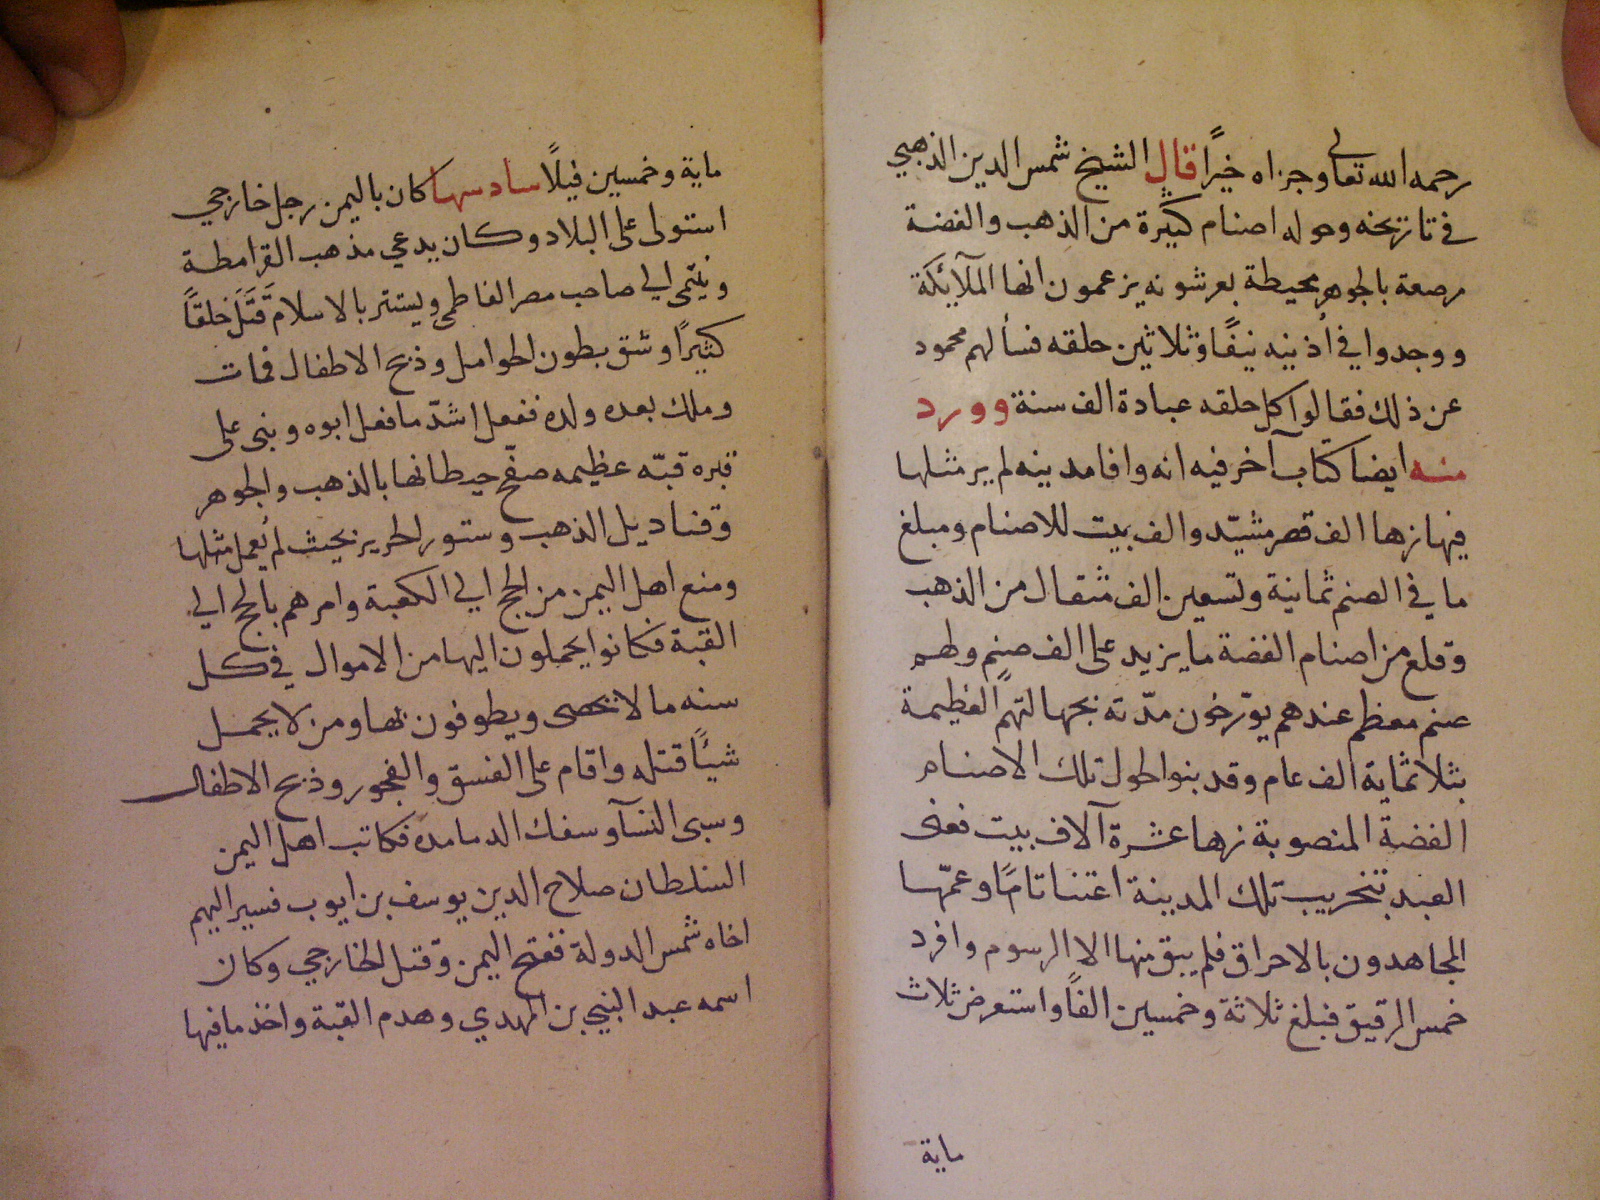 رحمه الله تعالى وجزاه خيرًا قال الشيخ شمس الدين الذهبي
في تاريخه وحوله اصنام كثيرة من الذهب والفضة
مرصعة بالجوهر محيطة بعرشونه يزعمون انها الملآئكة
ووجدوا في أذينيه نيفًا وثلاثين حلقه فسألهم محمود
عن ذلك فقالوا كل حلقه عبادة الف سنة وورد
منه ايضا كتاب آخر فيه انه وافا مدينه لم ير مثلها
فيها زها الف قصر مشيّد والف بيت للاصنام ومبلغ
ما في الصنم ثمانية وتسعين الف مثقال من الذهب
وقلع من اصنام الفضة ما يزيد على الف صنم ولهم
صنم معظم عندهم يؤرخون مدّته بجهالتهم العظيمة
بثلاثماية الف عام وقد بنوا حول تلك الاصنام
الفضة المنصوبة زها عشرة آلاف بيت فعنى
العبد بتخريب تلك المدينة اعتنا تامًا وعمّها
المجاهدون بالاحراق فلم يبق منها الا الرسوم وافرد
خمس الرقيق فبلغ ثلاثة وخمسين الفًا واستعرض ثلاث
ماية
ماية وخمسين فيلًا سادسها كان باليمن رجل خارجي
استولى على البلاد وكان يدعي مذهب القرامطة
وينتمي الي صاحب مصر الفاطمي ويستتر بالاسلام قَتَلَ خلقًا
كثيرًا وشق بطون الحوامل وذبح الاطفال فمات
وملك بعده ولده ففعل اشدّ ما فعل ابوه وبنى على
قبره قبّه عظيمه صفّح حيطانها بالذهب والجوهر
وقناديل الذهب وستور الحرير بحيث لم يُعمل مثلها
ومنع اهل اليمن من الحج الي الكعبة وامرهم بالحج الي
القبة فكانوا يحملون اليها من الاموال في كل
سنه ما لا يحصى ويطوفون بها ومن لا يحمل
شيئًا قتله واقام على الفسق والفجور وذبح الاطفال
وسبى النسآ وسفك الدما مده فكاتب اهل اليمن
السلطان صلاح الدين يوسف بن ايوب فسير اليهم
اخاه شمس الدولة ففتح اليمن وقتل الخارجي وكان
اسمه عبد النبي بن المهدي وهدم القبة واخذ ما فيها